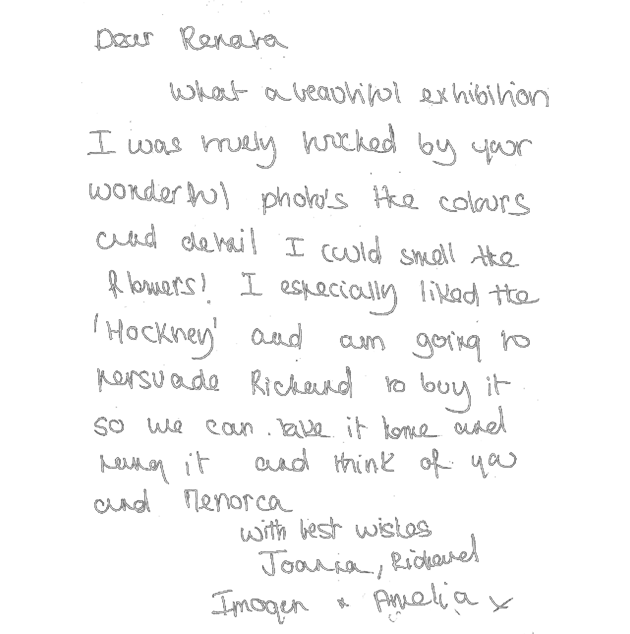 Dear Renata
What a beautiful exhibition
I was truely touched by your
wonderful photo's the colours
and detail I could smell the
flowers! I especially liked the
'Hockney' and am going to
persuade Richard to buy it
so we can take it home and
hang it and think of you
and Menorca
with best wishes
Joanna, Richard
Imogen & Amelia x